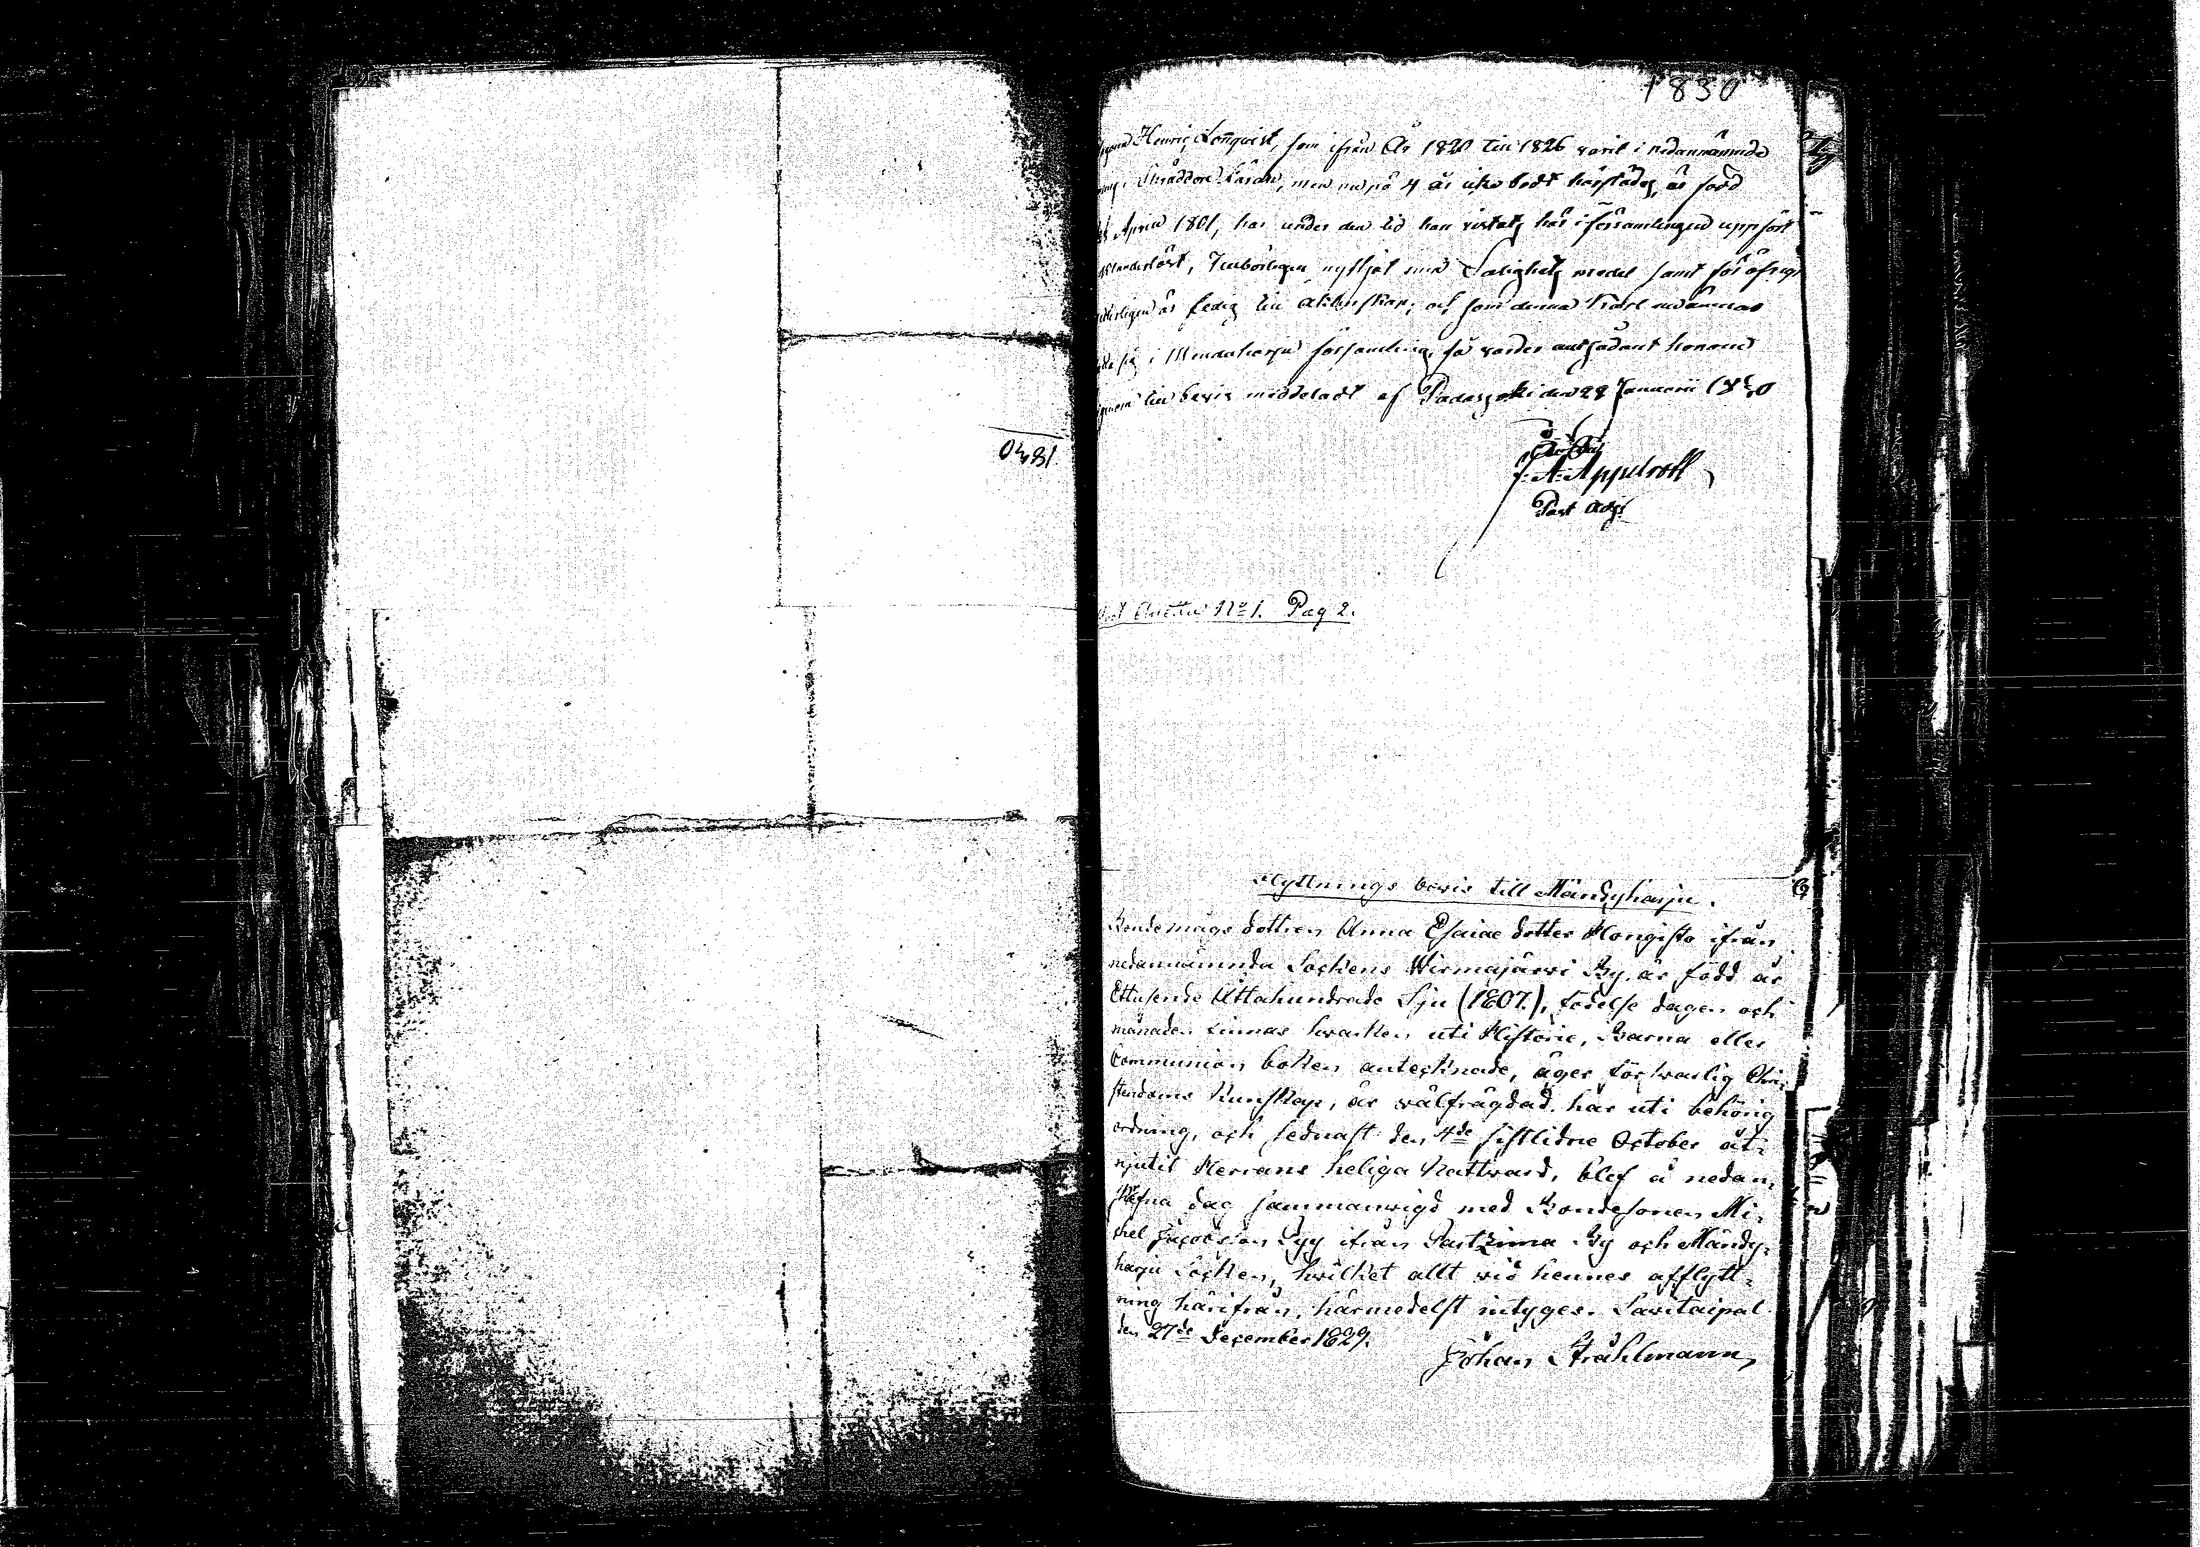 1830
Henric Lönqvist, som ifrån År 1820 till 1826 varit i nedannämnde
Skräddare Läran, men nu på 4 år icke bodt härstädes, är född
April 1801, har under den tid han vistats här i församlingen uppfört
oklanderligt, Tillbörligen nyttjat sina Salighets medel samt för öfrigt
är ledig till äktenskap; och som denna Karl
sig i Mendæharju församling, så varder antydant honom
till bevis meddeladt af Padasjoki den 28 Januarii 1830
1830
J. A. Appelroth
Past Adj:
No 1. Pag 2.
Flyttnings bevis till Mändyharju.
Bondemågs dottren Anna Esaiae dotter Hongisto ifrån
nedannämnda Sockens Wirmajärvi By, är född år
Ettusende Åttahundrade Sju (1807.), födelse dagen och
månaden finnas hvarken uti Historie, Barna eller
Communion boken antecknade, äger försvarlig Chri-
stendoms Kunskap, är välfrägdad, har uti behörig
ordning, och sednast den 4de sistlidne October åt-
njutit Herrans heliga Nattvard, blef å nedan-
skrefna dag sammanvigd med Bondesonen Mi-
chel Jacobsson Pyy ifrån Partzima By och Mändy-
harju Socken, hvilket allt vid hennes afflytt-
ning härifrån, härmedelst intyges. Savitaipal
den 27de December 1829.
Johan Stråhlmann,